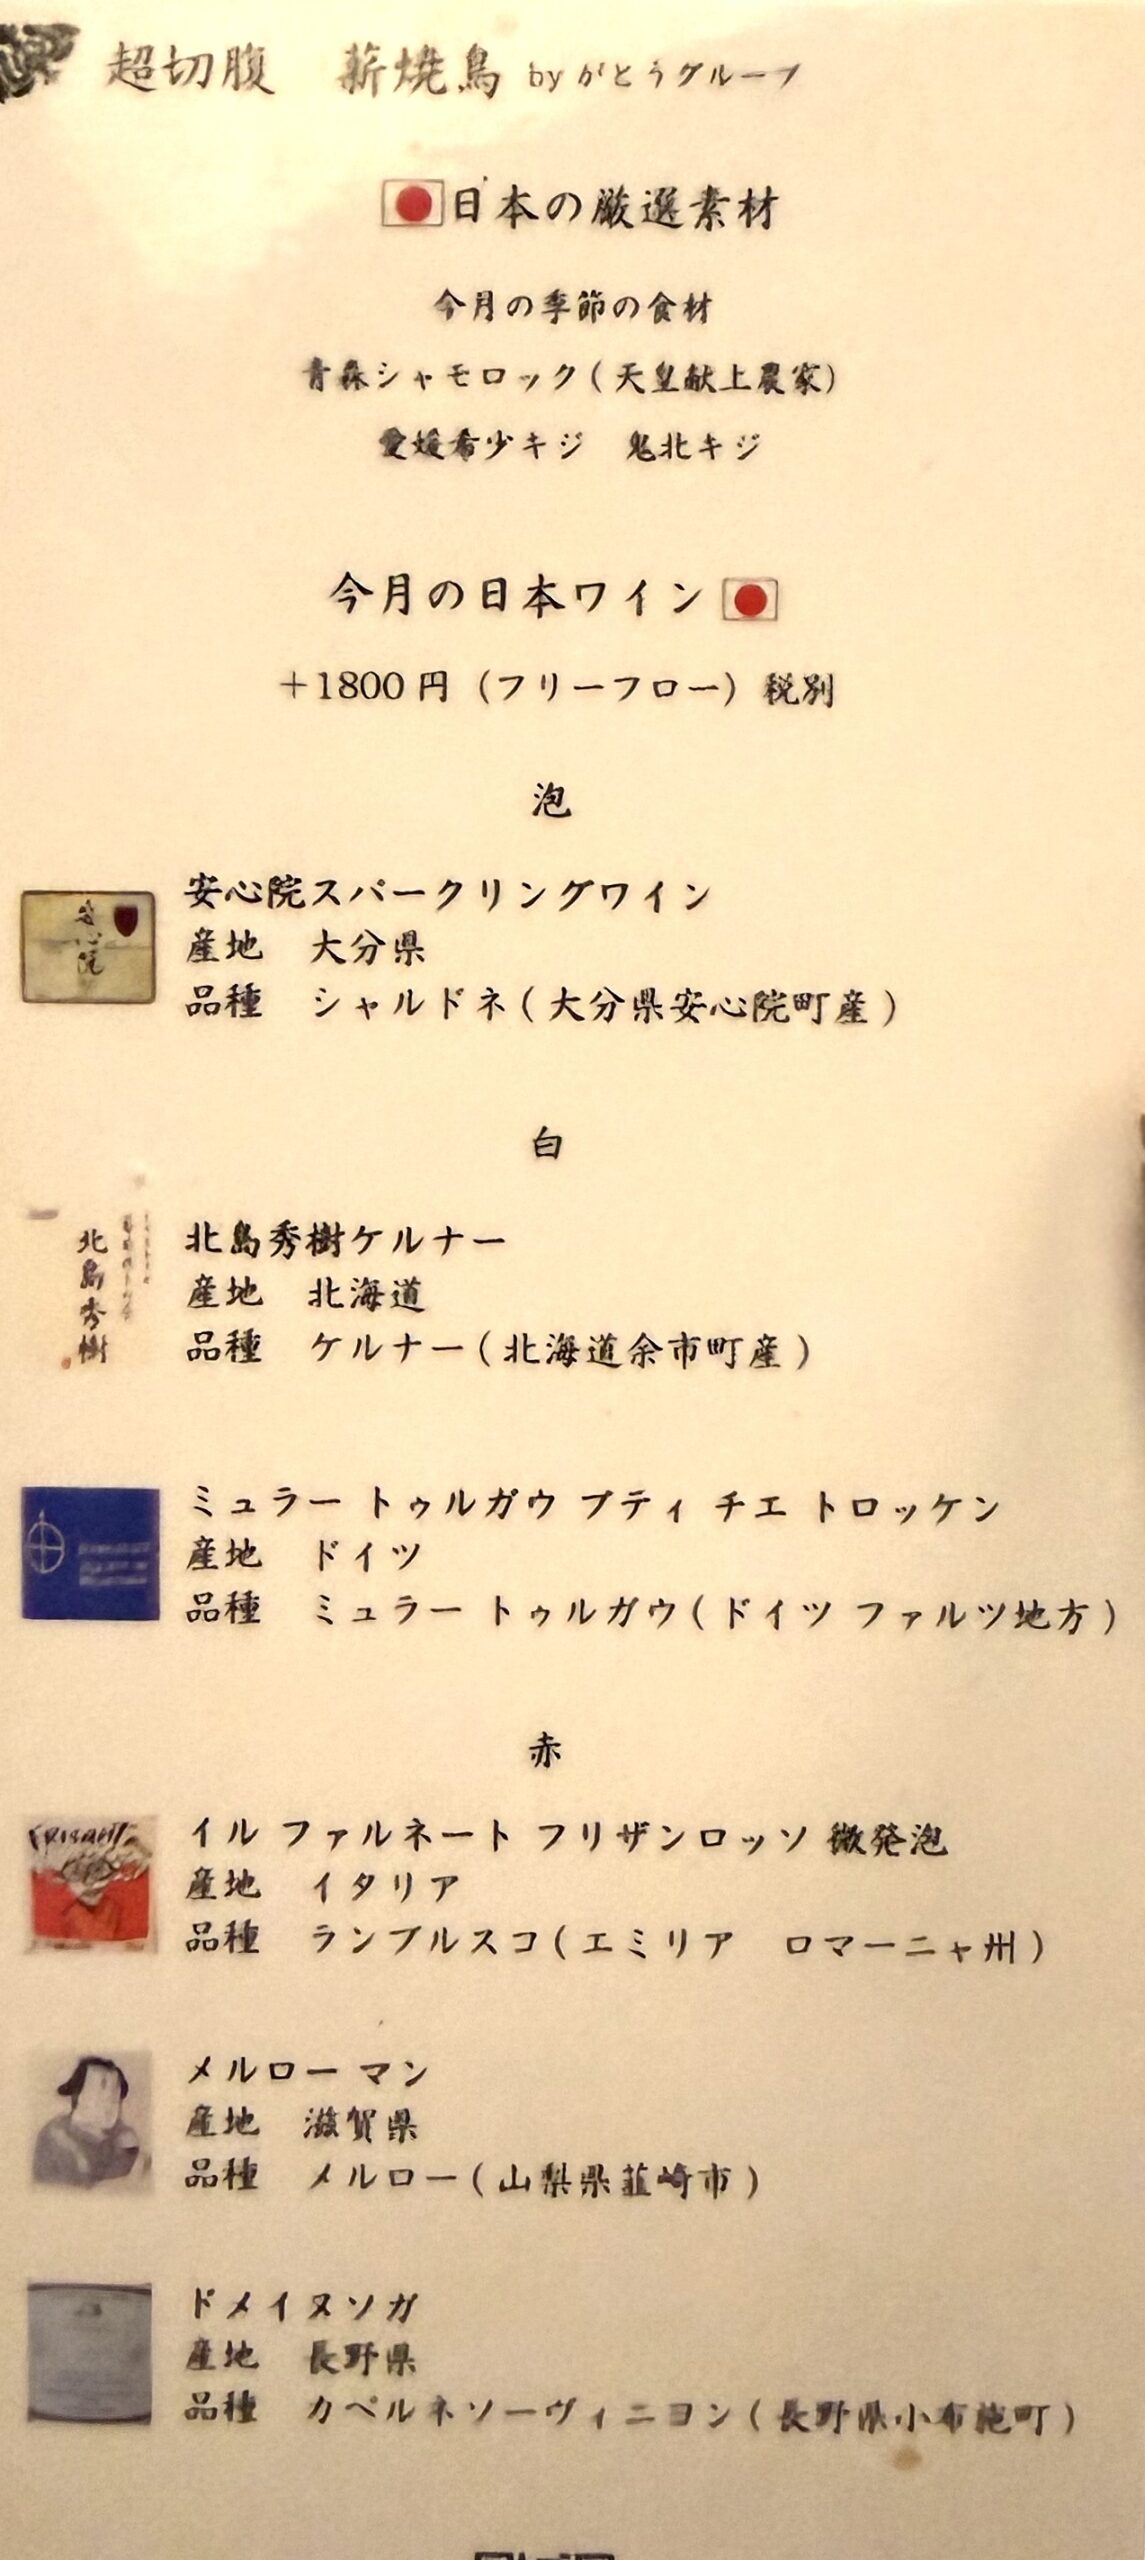 超切腹 薪焼鳥 by がとうグループ
日本の厳選素材
今月の季節の食材
青森シャモロック(天皇献上農家)
愛媛希少キジ 鬼北キジ
今月の日本ワイン
+1800円 (フリーフロー) 税別
泡
安心院
安心院スパークリングワイン
産地 大分県
品種 シャルドネ(大分県安心院町産)
白
北島秀樹
北島秀樹ケルナー
産地 北海道
品種 ケルナー(北海道余市町産)
ミュラー トゥルガウ プティ チエ トロッケン
産地 ドイツ
品種 ミュラー トゥルガウ(ドイツ ファルツ地方)
赤
イル ファルネート フリザンロッソ 微発泡
産地 イタリア
品種 ランブルスコ(エミリア ロマーニャ州)
メルロー マン
産地 滋賀県
品種 メルロー(山梨県韮崎市)
ドメイヌソガ
産地 長野県
品種 カベルネソーヴィニヨン(長野県小布施町)